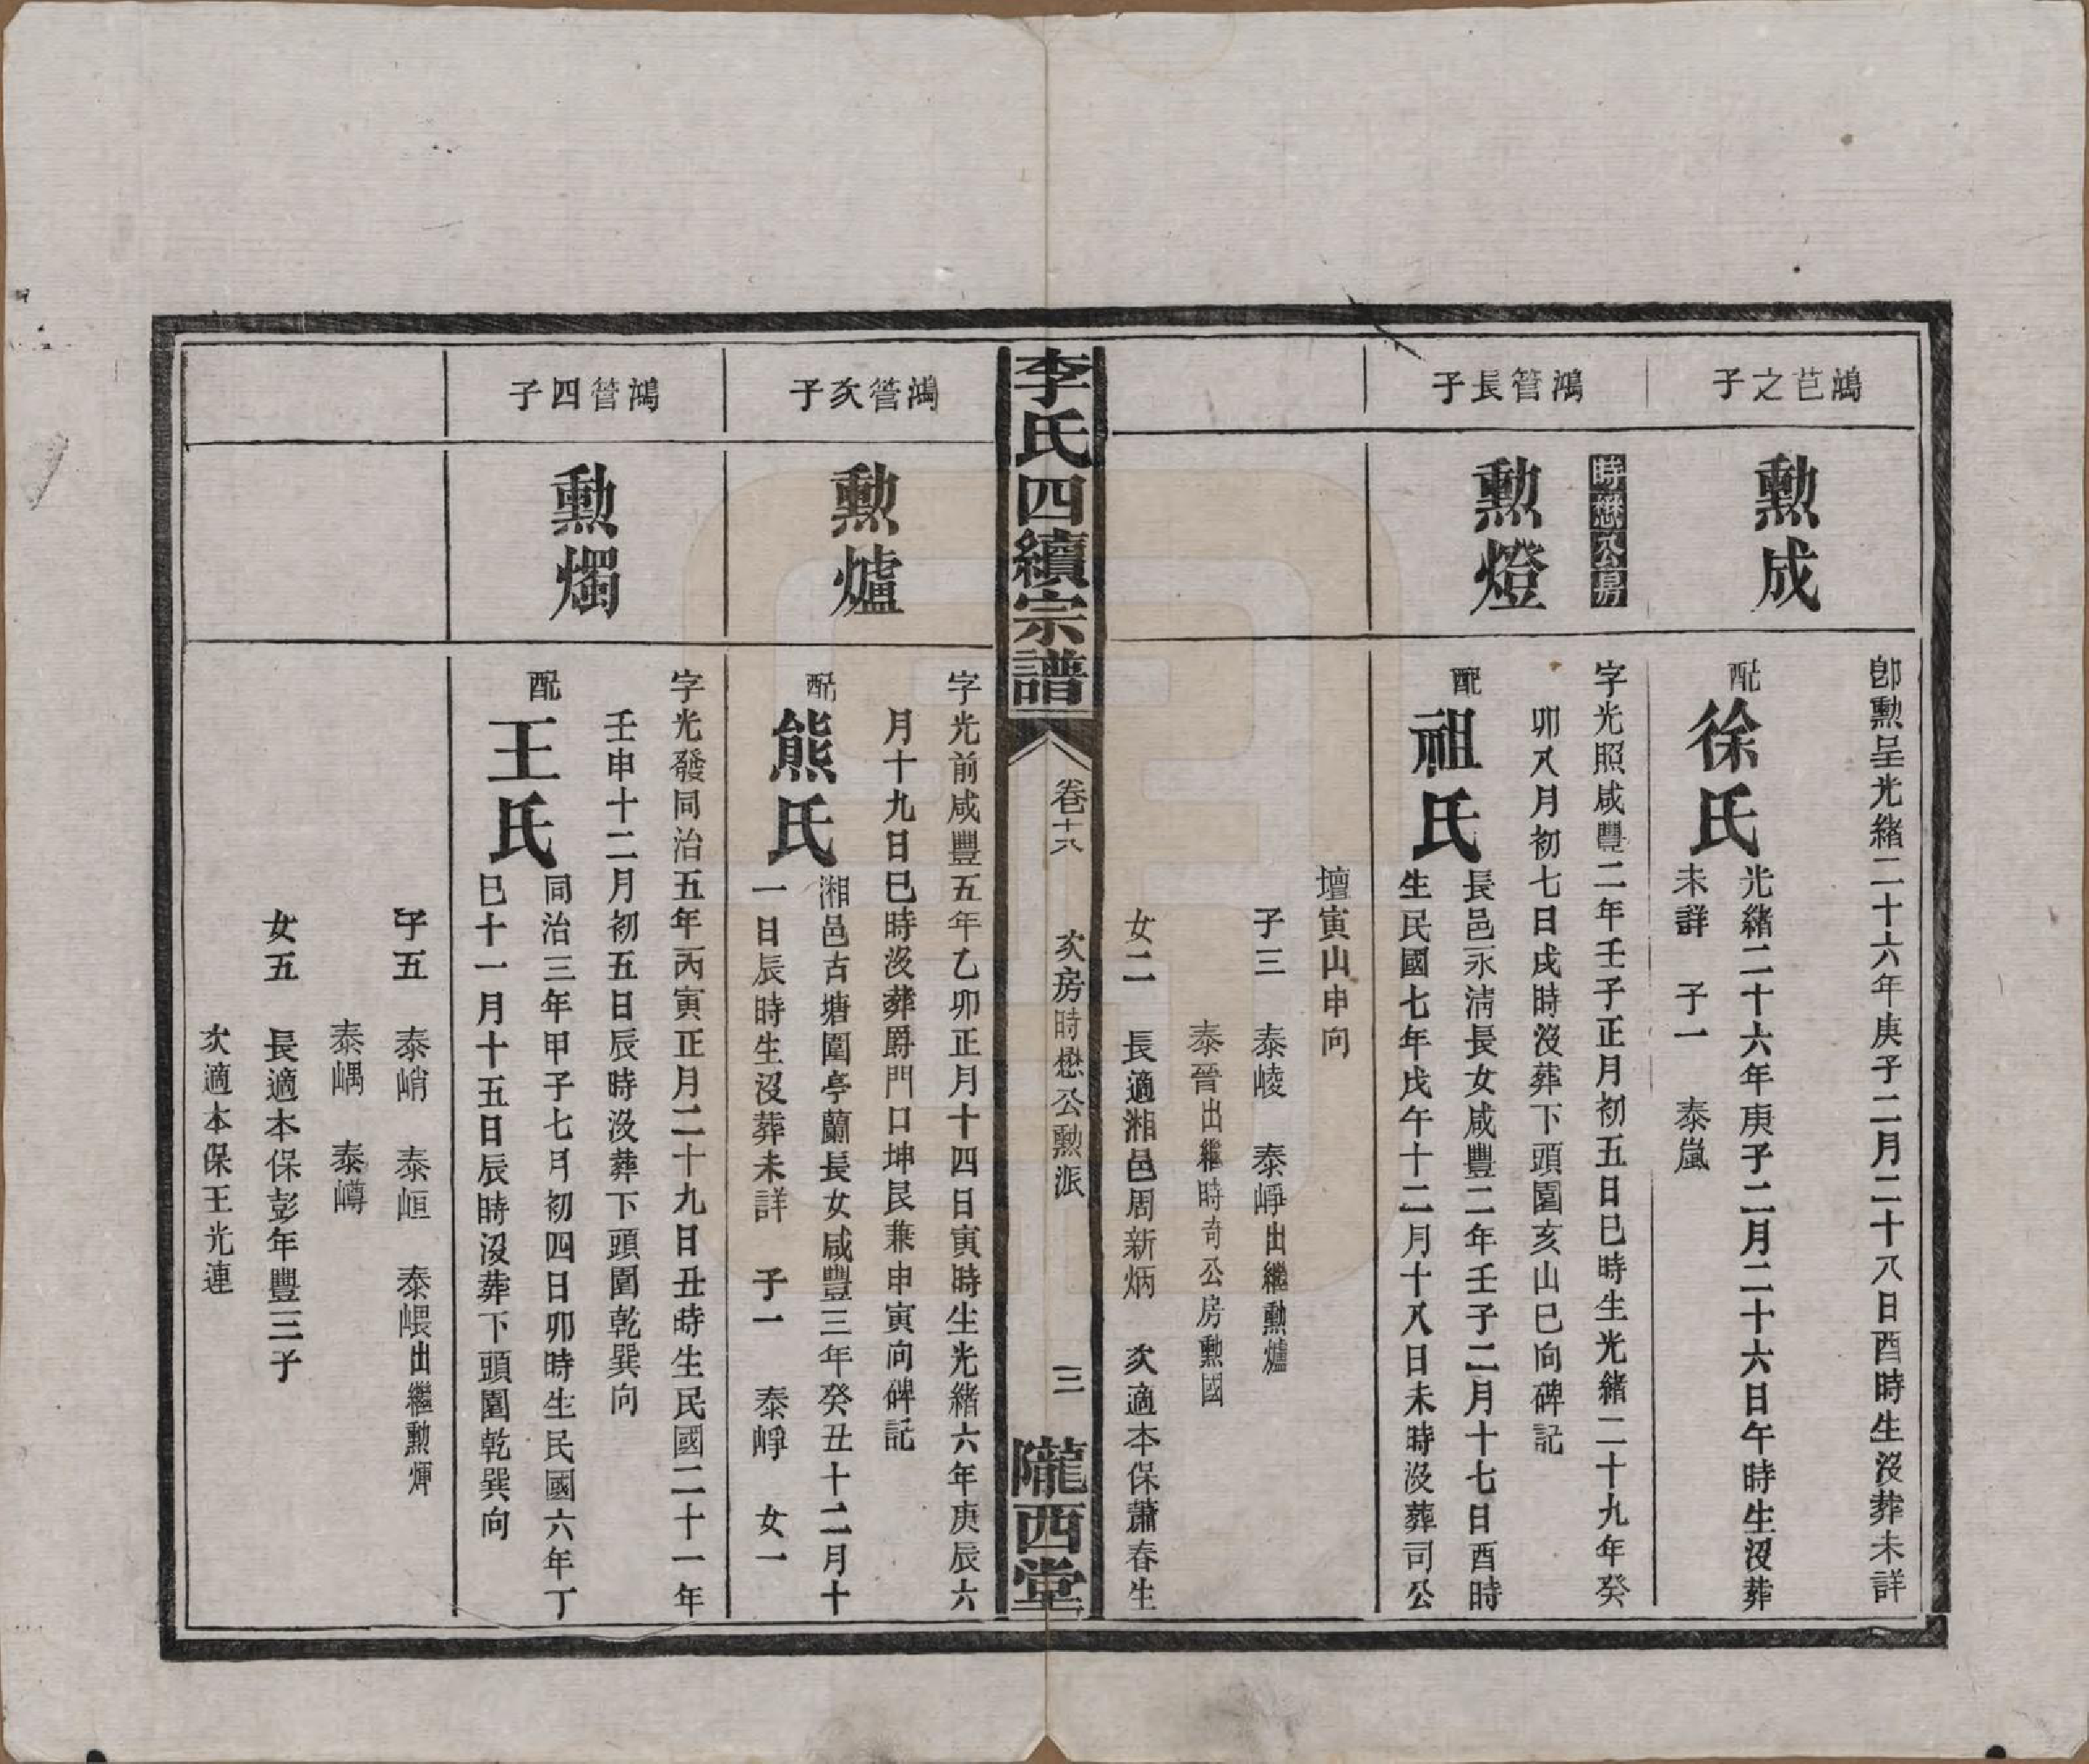 鴻芑之子
勲成
卽勲呈光緒二十六年庚子二月二十八日酉時生沒葬未詳
配徐氏
光緒二十六年庚子二月二十六日午時生沒葬
未詳 子一 泰嵐
時懋公房
鴻管長子
勲燈
字光照咸豐二年壬子正月初五日巳時生光緒二十九年癸
卯八月初七日戌時沒葬下頭園亥山巳向碑記
配祖氏
長邑永淸長女咸豐二年壬子二月十七日酉時
生民國七年戊午十二月十八日未時沒葬司公
壇寅山申向
子三 泰崚 泰崢出繼勲爐
泰晉出繼時奇公房勲國
女二 長適湘邑周新炳 次適本保蕭春生
李氏四續宗譜
卷十六
次房時懋公勲派
三
隴西堂
鴻管次子
勲爐
字光前咸豐五年乙卯正月十四日寅時生光緒六年庚辰六
月十九日巳時沒葬爵門口坤艮兼申寅向碑記
配熊氏
湘邑古塘圍亭蘭長女咸豐三年癸丑十二月十
一日辰時生沒葬未詳 子一 泰崢 女一
鴻管四子
勲燭
字光發同治五年丙寅正月二十九日丑時生民國二十一年
壬申十二月初五日辰時沒葬下頭園乾巽向
配王氏
同治三年甲子七月初四日卯時生民國六年丁
巳十一月十五日辰時沒葬下頭園乾巽向
子五 泰峭 泰峘 泰嵔出繼勲煇
泰嵎 泰嶟
女五 長適本保彭年豐三子
次適本保王光連